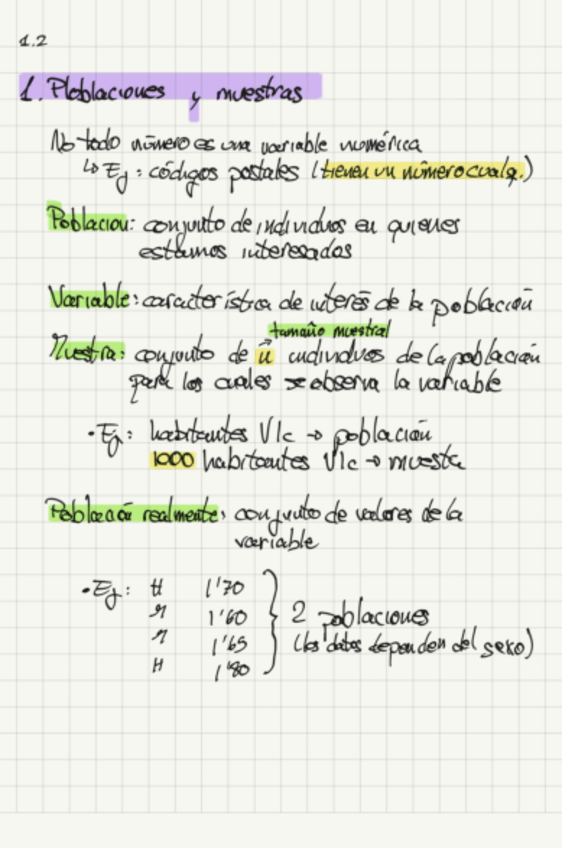 1.2
1. Ploblaciones y muestras
No todo número es una variable numérica
↳ Ej: códigos postales (tienen un número cualq.)
Población: conjunto de individuos en quienes
estamos interesados
Variable: característica de interés de la población
tamaño muestral
Muestra: conjunto de n individuos de la población
para los cuales se observa la variable
• Ej: habitantes Vlc → población
1000 habitantes Vlc → muesta
Población realmente: conjunto de valores de la
variable
• Ej: H 1'70
M 1'60
M 1'65
H 1'80
2 poblaciones
(los datos dependen del sexo)